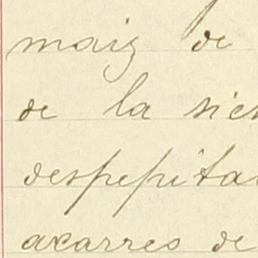 maiz de
de la sie
despepita
acarreo de